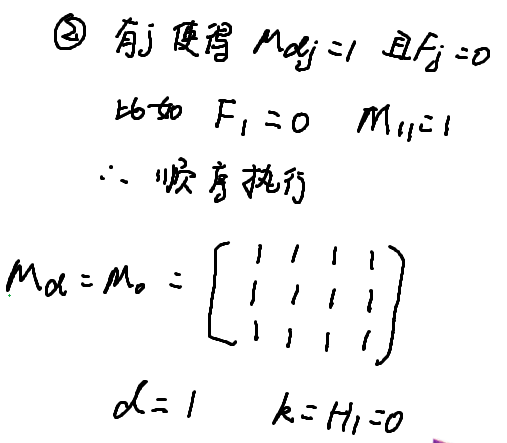 ② 有j使得 Mdj=1 且Fj=0
比如 F₁=0 M₁₁=1
∴ 顺序执行
Md=M₀=
[1 1 1 1
1 1 1 1
1 1 1 1]
d=1 k=H₁=0